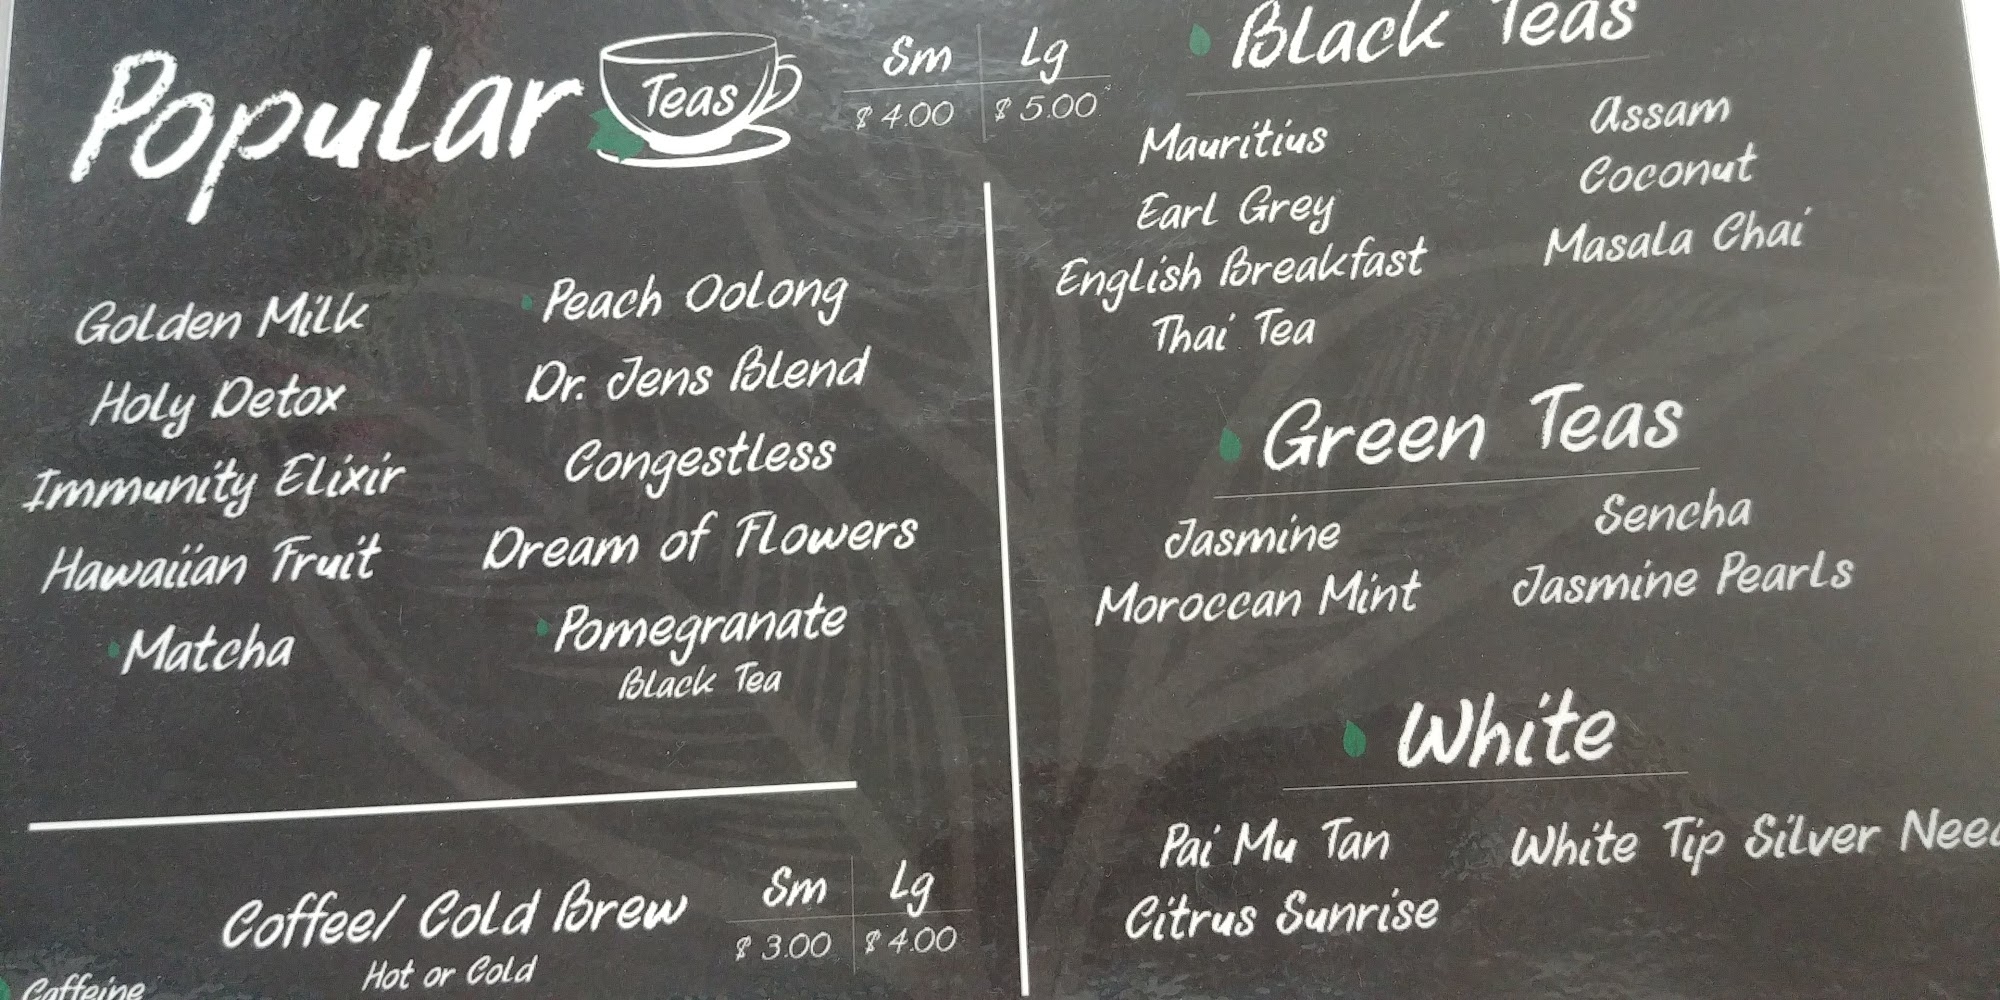 Popular Teas
Sm Lg
$ 4.00 $ 5.00
Golden Milk
Holy Detox
Immunity Elixir
Hawaiian Fruit
Matcha
Peach Oolong
Dr. Jens Blend
Congestless
Dream of Flowers
Pomegranate
Black Tea
Coffee/ Cold Brew
Hot or Cold
Sm Lg
$ 3.00 $ 4.00
Caffeine
Black Teas
Mauritius
Earl Grey
English Breakfast
Thai Tea
Assam
Coconut
Masala Chai
Green Teas
Jasmine
Moroccan Mint
Sencha
Jasmine Pearls
White
Pai Mu Tan
Citrus Sunrise
White Tip Silver